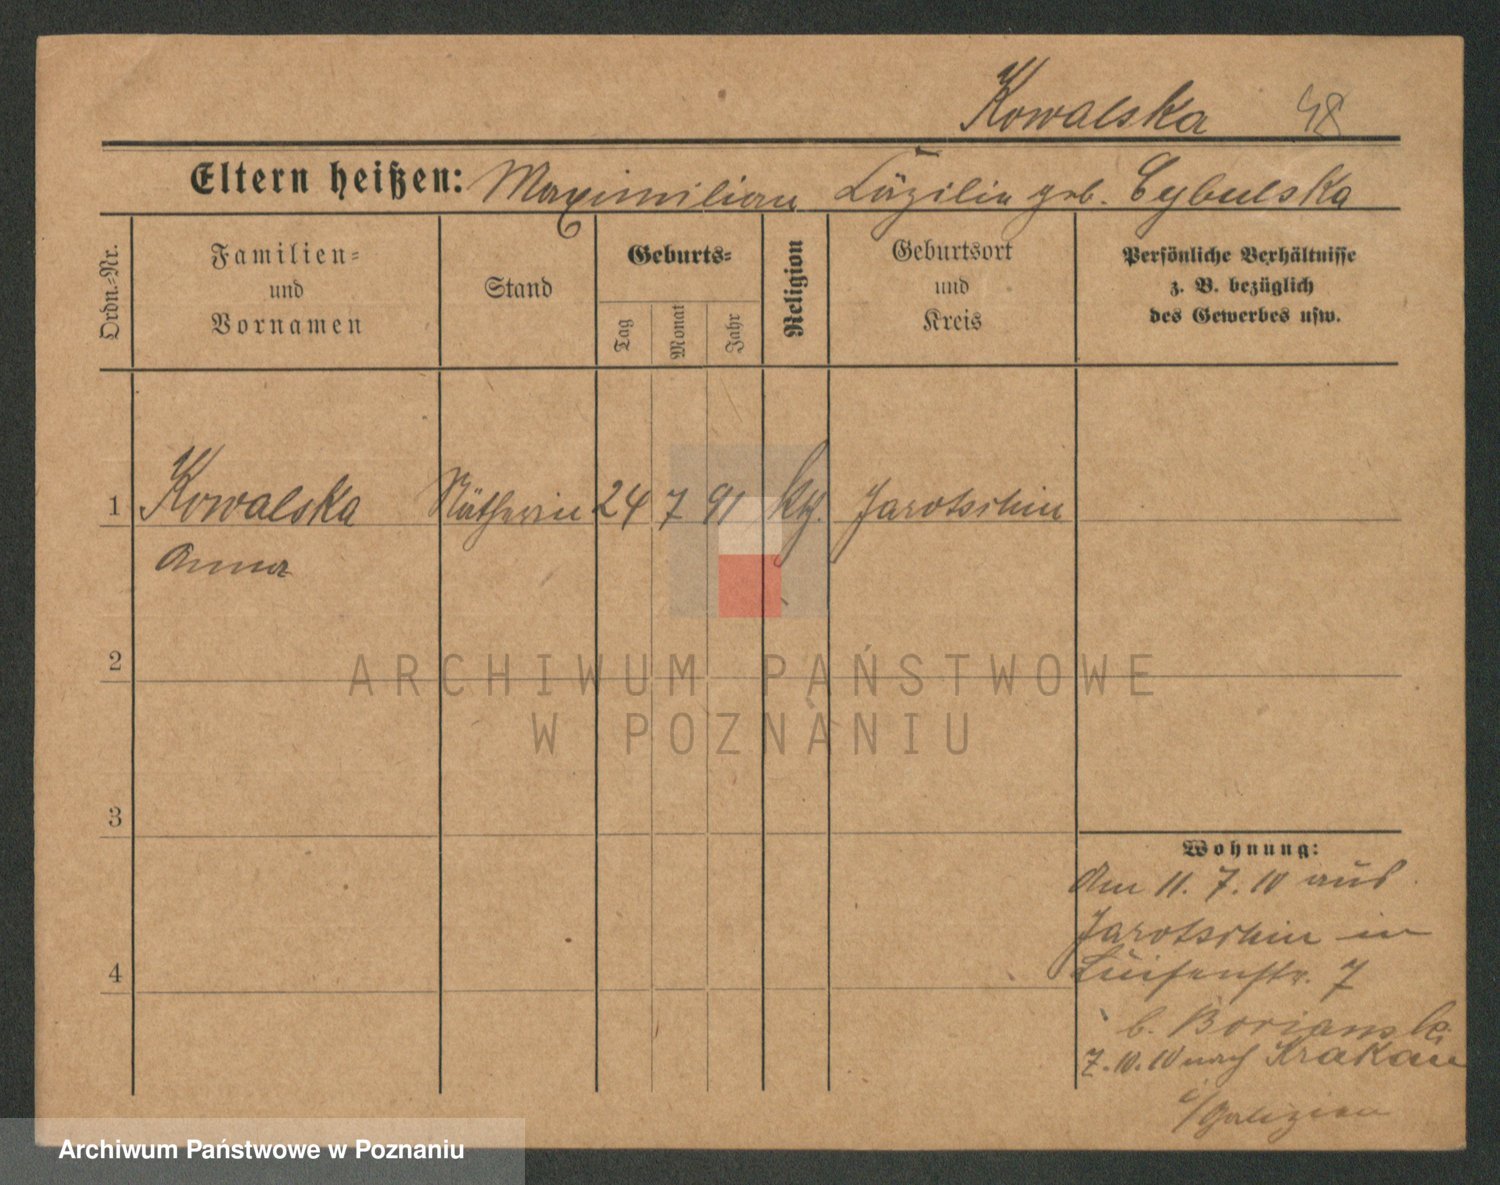 Kowalska 48
Eltern heißen: Maximilian Cäzilie geb. Cybulska
Ordn.=Nr.
Familien=
und
Vornamen
Stand
Geburts=
Tag
Monat
Jahr
Religion
Geburtsort
und
Kreis
Persönliche Verhältnisse
z. B. bezüglich
des Gewerbes usw.
1 Kowalska Nätherin 24 7 91 kth. Jarotschin
Anna
2
3
4
Wohnung:
Am 11. 7. 10 aus
Jarotschin in
Luisenstr. 7
b.
7.10.10 nach Krakau
i/Galizien
ARCHIWUM PAŃSTWOWE
W POZNANIU
Archiwum Państwowe w Poznaniu